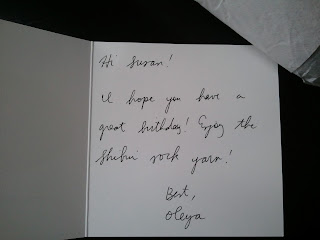 Hi Susan!
I hope you have a
great birthday! Enjoy the
Shibui sock yarn!
Best,
Oleya